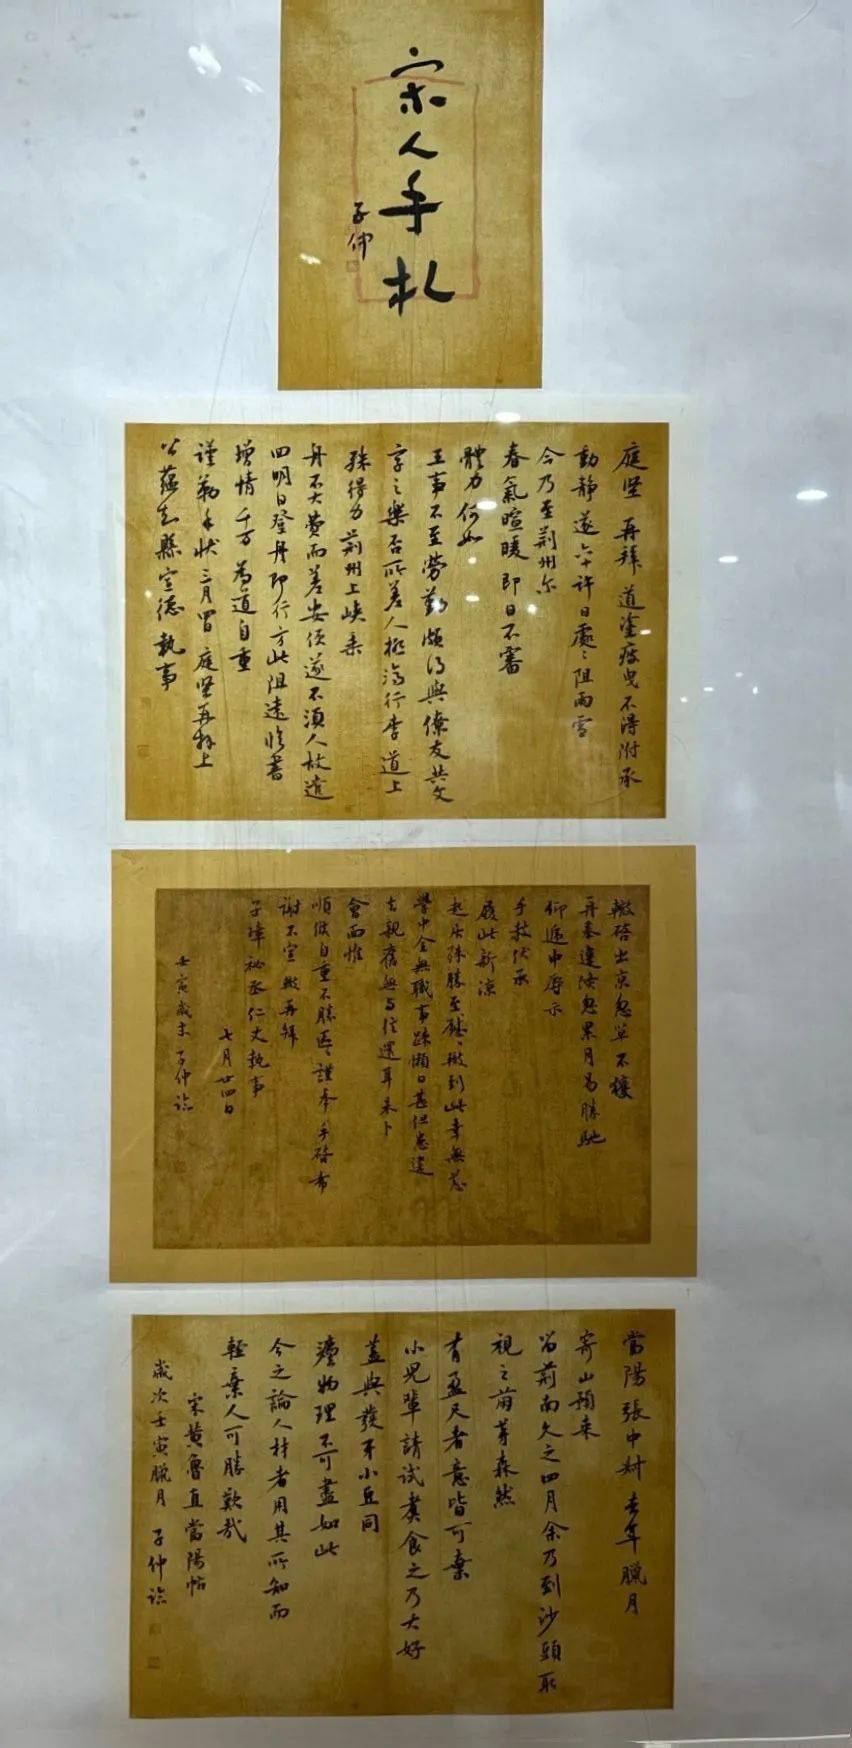 宋人手札
子仲
庭坚再拜道塗疲曳不得附承
動静遂六十許日處〻阻雨雪
今乃至荆州尔
春氣暄暖即日不審
體力何如
王事不至勞勤頗得與僚友共文
字之樂否所差人極濟行李道上
殊得力荆州上峽乘
舟不大費而差安便遂不須人故遣
回明日登舟即行方此阻遠臨書
增情千万為道自重
謹勒手狀三月四日庭坚再拜上
公蕴知縣宣德執事
轍啓出京怱草不獲
再奉違淡怱累月易勝馳
仰遞中辱示
手教伏承
履此新涼
起居殊勝至慰〻轍到此幸無恙
學中全無職事疎懶日甚但怱違
去親舊無与往還耳未卜
會面惟
順候自重不勝區〻謹奉手啓布
謝不宣轍再拜
子璋祕丞仁丈執事
七月廿四日
壬寅歲末子仲臨
當陽張中叔去年臘月
寄山預来
留荆南久之四月余乃到沙頭取
視之萌芽森然
有盈尺者意皆可棄
小兒輩請試煮食之乃大好
蓋與發牙小豆同
法物理不可盡如此
今之論人材者用其所知而
輕棄人可勝歎哉
宋黄魯直當陽帖
歲次壬寅臘月子仲臨